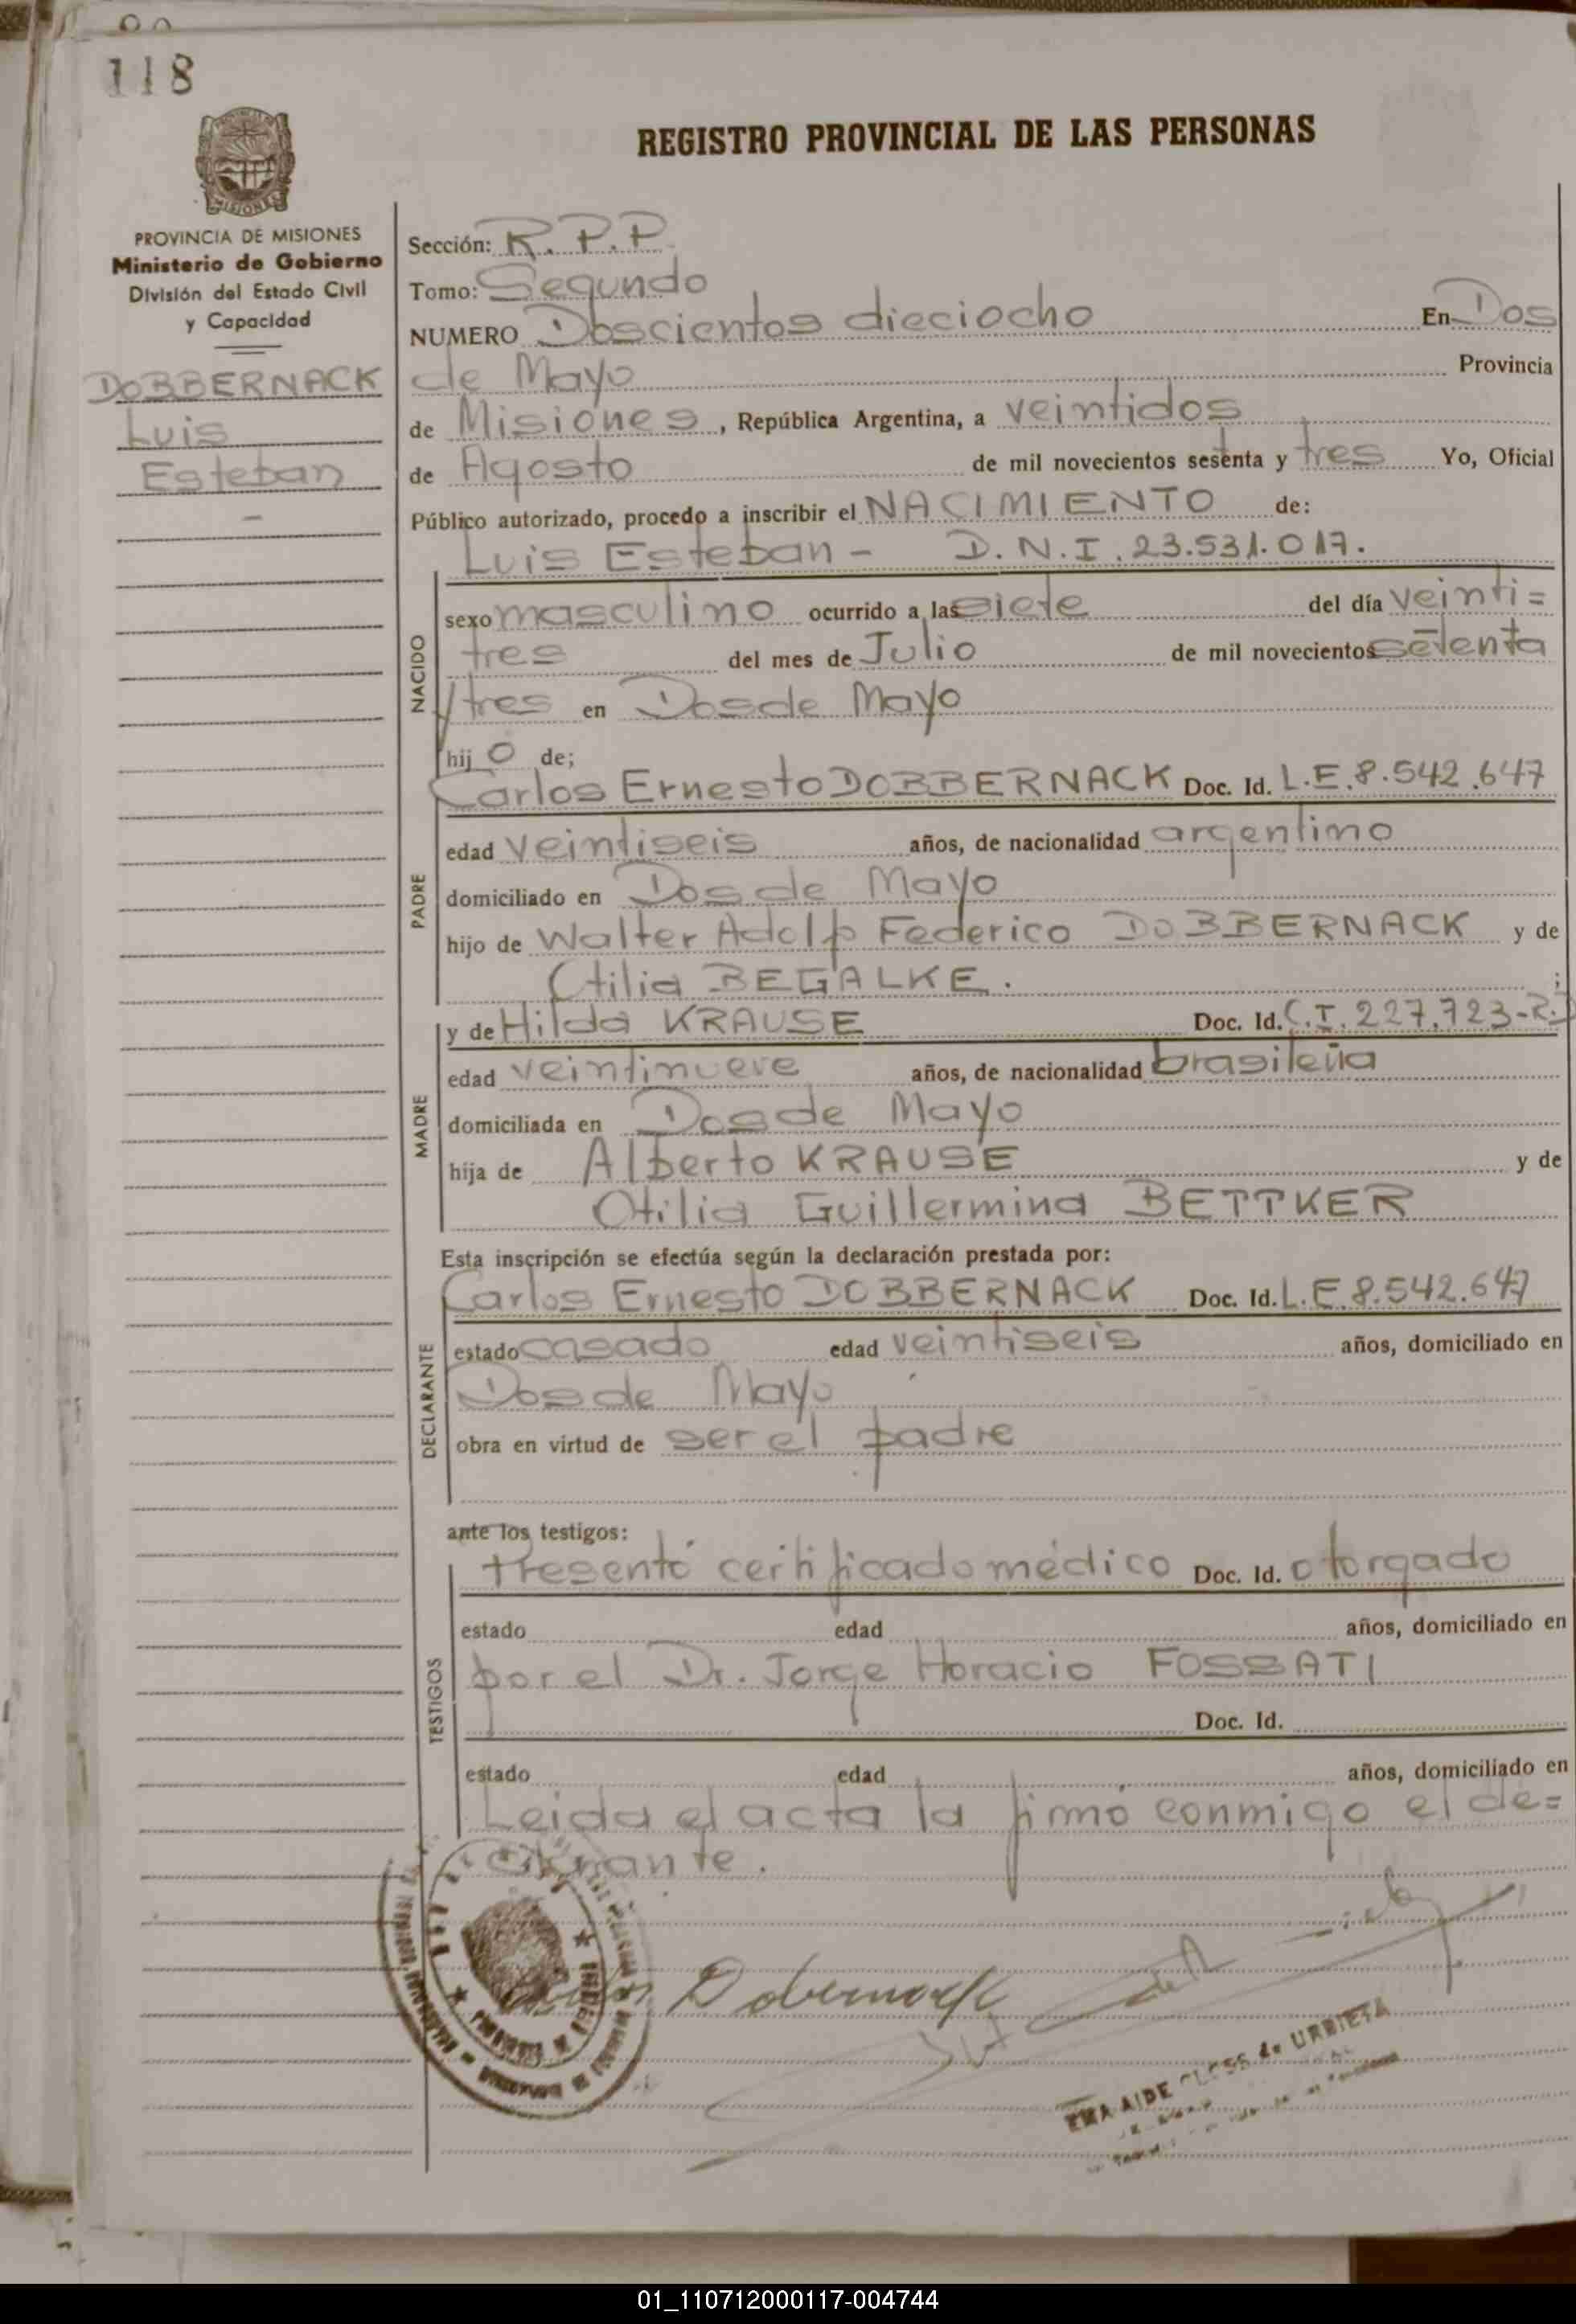 118
REGISTRO PROVINCIAL DE LAS PERSONAS
MISIONES
PROVINCIA DE MISIONES
Ministerio de Gobierno
División del Estado Civil
y Capacidad
DOBBERNACK
Luis
Esteban
Sección: R.P.P.
Tomo: Segundo
NUMERO Doscientos dieciocho En Dos
de Mayo Provincia
de Misiones, República Argentina, a veintidos
de Agosto de mil novecientos sesenta y tres Yo, Oficial
Público autorizado, procedo a inscribir el NACIMIENTO de:
Luis Esteban - D.N.I. 23.531.017.
NACIDO
sexo masculino ocurrido a las siete del día veinti=
tres del mes de Julio de mil novecientos setenta
y tres en Dos de Mayo
hijo de;
PADRE
Carlos Ernesto DOBBERNACK Doc. Id. L.E.8.542.647
edad veintiseis años, de nacionalidad argentino
domiciliado en Dos de Mayo
hijo de Walter Adolfo Federico DOBBERNACK y de
Otilia BEGALKE. ;
MADRE
y de Hilda KRAUSE Doc. Id. C.I. 227.723-
edad veintinueve años, de nacionalidad brasileña
domiciliada en Dos de Mayo
hija de Alberto KRAUSE y de
Otilia Guillermina BETTKER
Esta inscripción se efectúa según la declaración prestada por:
DECLARANTE
Carlos Ernesto DOBBERNACK Doc. Id. L.E.8.542.647
estado casado edad veintiseis años, domiciliado en
Dos de Mayo
obra en virtud de ser el padre
ante los testigos:
TESTIGOS
Presentó certificado médico Doc. Id. otorgado
estado edad años, domiciliado en
por el Dr. Jorge Horacio FOSSATI
Doc. Id.
estado edad años, domiciliado en
Leida el acta la firmó conmigo el de=
clarante.
Dobernack
EMA AIDE CLOSS de URBIETA
01_110712000117-004744